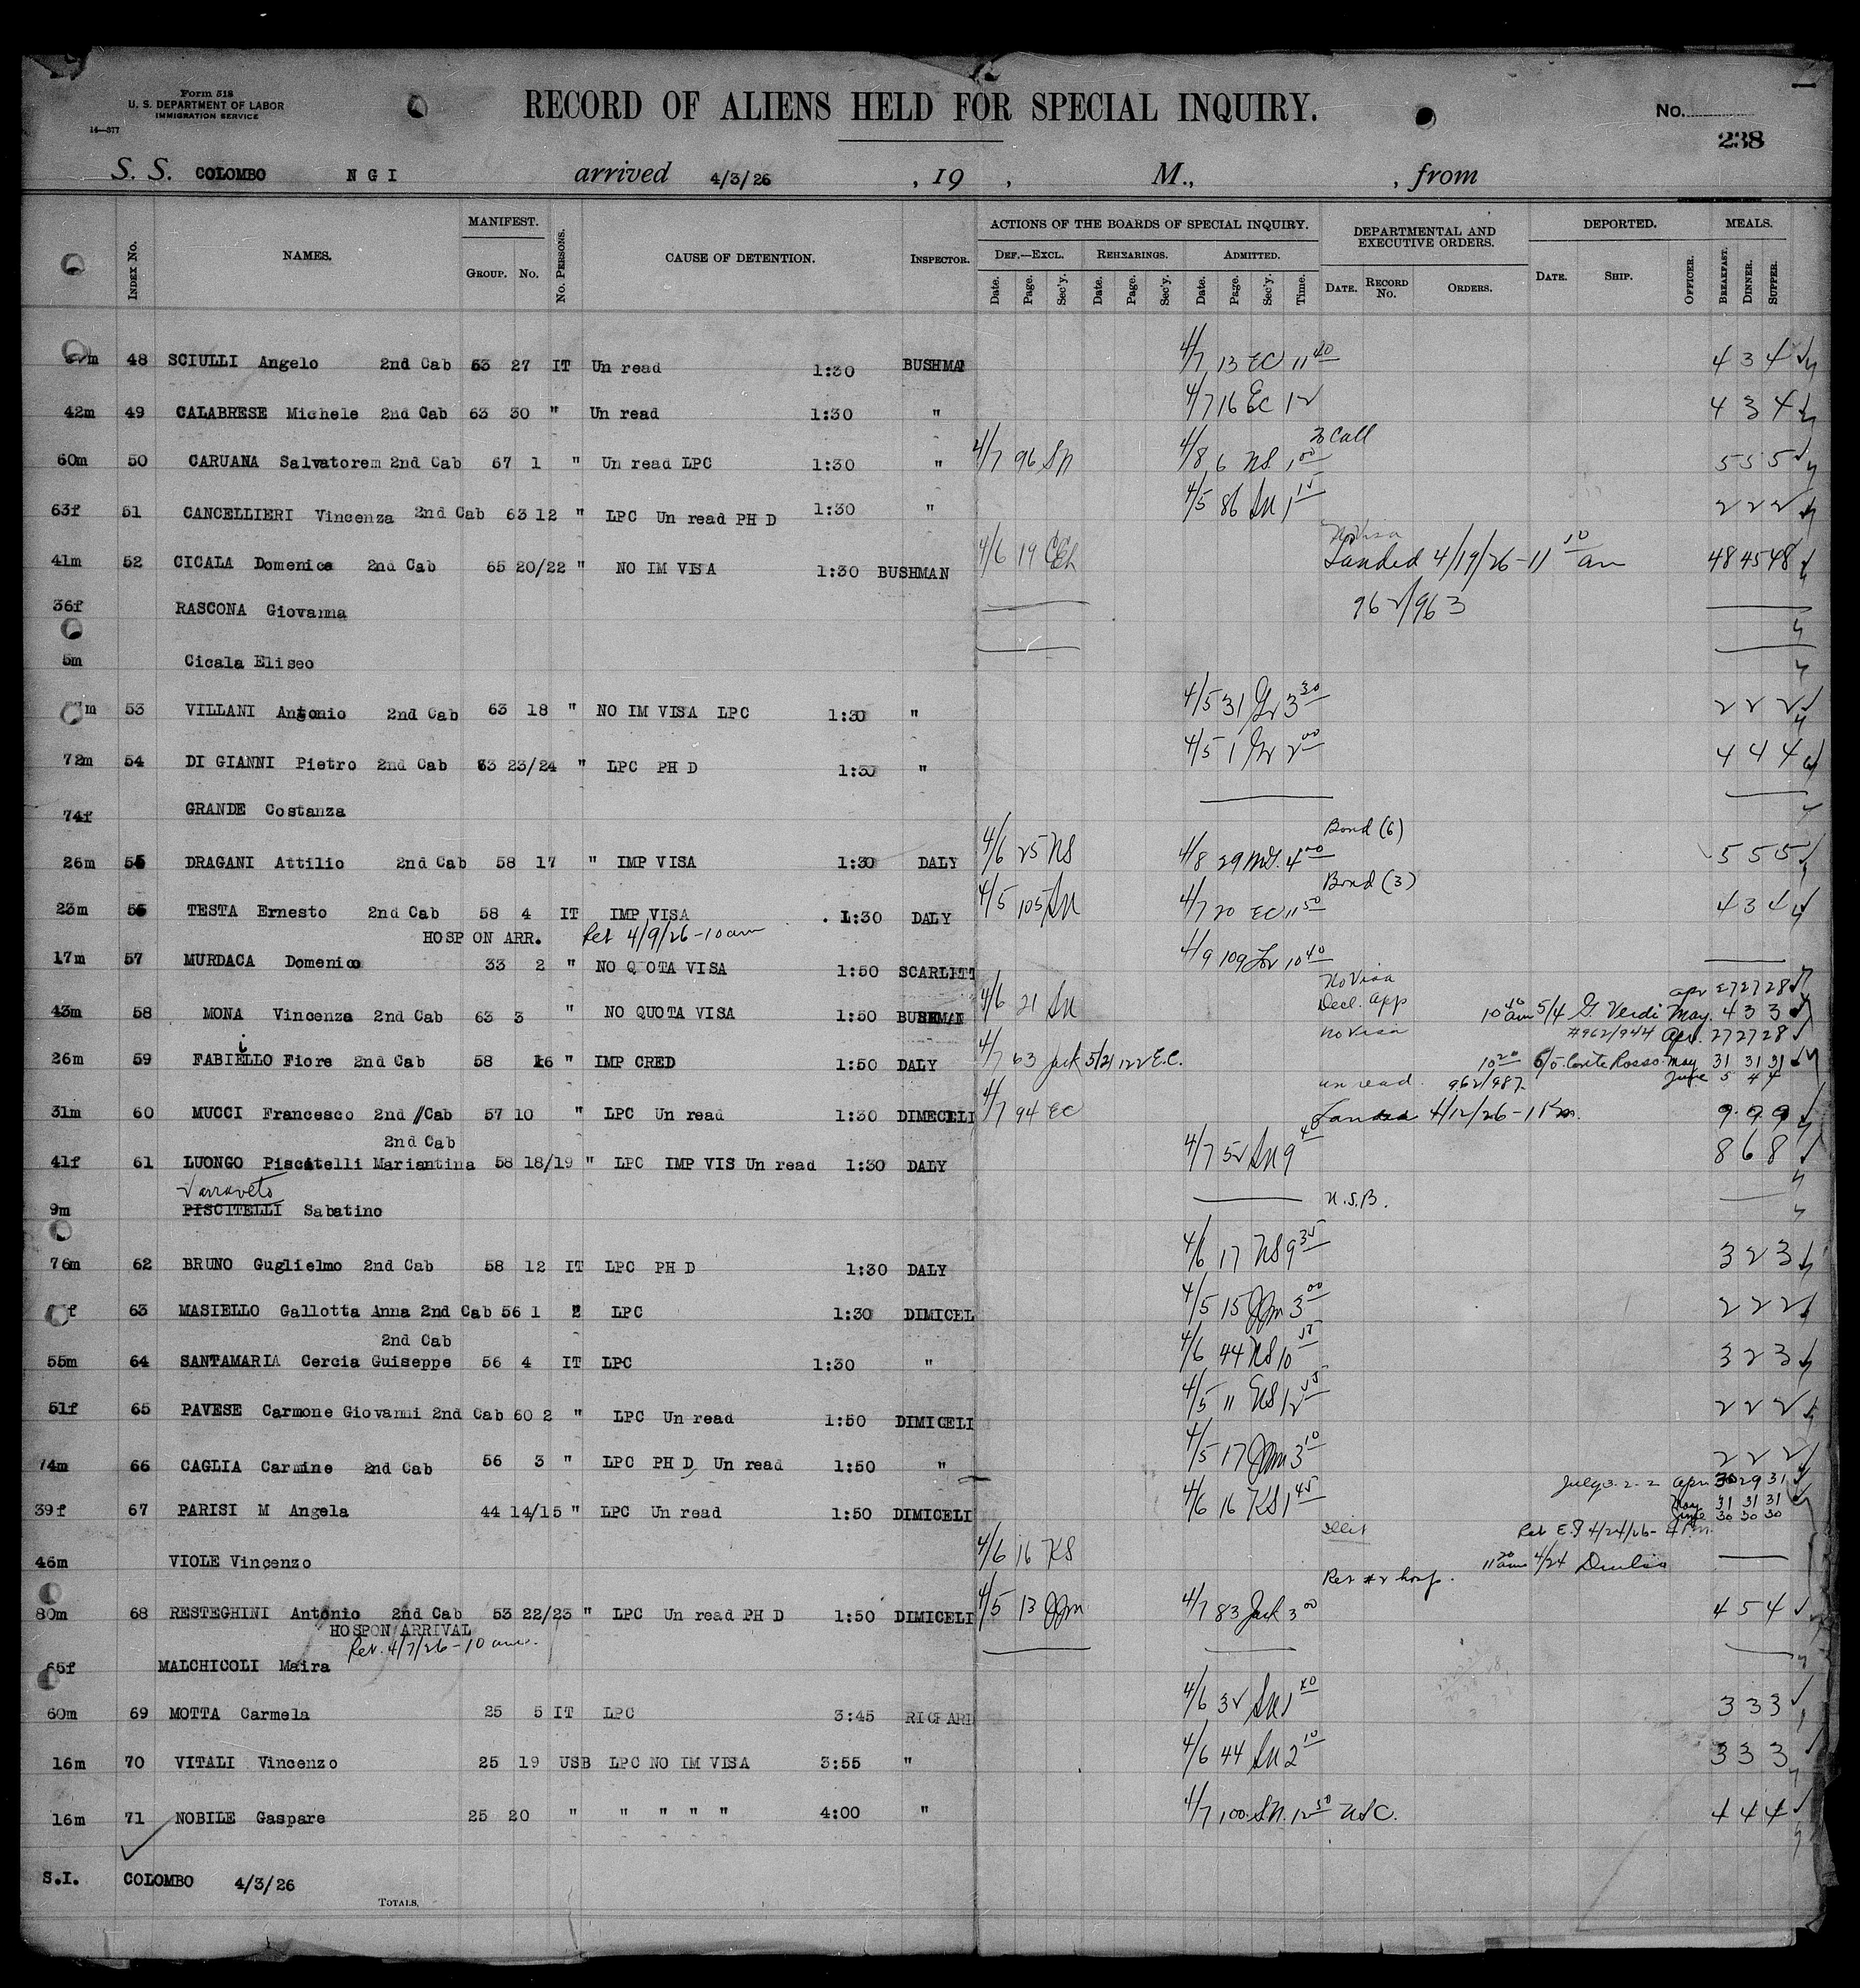 Form 518
U. S. DEPARTMENT OF LABOR
IMMIGRATION SERVICE
14—377
RECORD OF ALIENS HELD FOR SPECIAL INQUIRY.
No.
238
S. S. COLOMBO N G I arrived 4/3/26 , 19 , M., , from
Index No. NAMES. MANIFEST. GROUP. NO. No. PERSONS. CAUSE OF DETENTION. INSPECTOR. ACTIONS OF THE BOARDS OF SPECIAL INQUIRY. DEF.—EXCL. Date. Page. Sec'y. REHEARINGS. Date. Page. Sec'y. ADMITTED. Date. Page. Sec'y. Time. DEPARTMENTAL AND EXECUTIVE ORDERS. DATE. RECORD NO. ORDERS. DEPORTED. DATE. SHIP. OFFICER. MEALS. BREAKFAST. DINNER. SUPPER.
m 48 SCIULLI Angelo 2nd Cab 63 27 IT Un read 1:30 BUSHMAN 4/7 13 EC 11 40 4 3 4
42m 49 CALABRESE Michele 2nd Cab 63 30 " Un read 1:30 " 4/7 16 EC 12 4 3 4
60m 50 CARUANA Salvatorem 2nd Cab 67 1 " Un read LPC 1:30 " 4/7 96 SN 4/8 6 NS 1 00 Call 5 5 5
63f 51 CANCELLIERI Vincenza 2nd Cab 63 12 " LPC Un read PH D 1:30 " 4/5 86 SN 1 15 2 2 2
No Visa
41m 52 CICALA Domenica 2nd Cab 65 20/22 " NO IM VISA 1:30 BUSHMAN 4/6 19 Landed 4/19/26 - 11 10 am 48 45 48
36f RASCONA Giovanna 962/963
5m Cicala Eliseo
m 53 VILLANI Antonio 2nd Cab 63 18 " NO IM VISA LPC 1:30 " 4/5 31 3 30 2 2 2
72m 54 DI GIANNI Pietro 2nd Cab 63 23/24 " LPC PH D 1:30 " 4/5 1 2 00 4 4 4
74f GRANDE Costanza
Bond (6)
26m 55 DRAGANI Attilio 2nd Cab 58 17 " IMP VISA 1:30 DALY 4/6 25 NS 4/8 29 4 00 5 5 5
Bond (3)
23m 56 TESTA Ernesto 2nd Cab 58 4 IT IMP VISA 1:30 DALY 4/5 105 SN 4/7 20 EC 11 50 4 3 4
HOSP ON ARR. Ret 4/9/26 - 10 am
17m 57 MURDACA Domenico 33 2 " NO QUOTA VISA 1:50 SCARLETT 4/9 109 10 40
No Visa Apr 27 27 28
43m 58 MONA Vincenza 2nd Cab 63 3 " NO QUOTA VISA 1:50 BUSHMAN 4/6 21 SN Decl. App 10 40 am 5/4 G. Verdi May 4 3 3
no visa #962/944 Apr. 27 27 28
26m 59 FABIELLO Fiore 2nd Cab 58 16 " IMP CRED 1:50 DALY 4/7 63 Jack 5/21 122 E.C. 10 20 6/5 Conte Rosso May 31 31 31
un read. 962/987 June 5 4 4
31m 60 MUCCI Francesco 2nd Cab 57 10 " LPC Un read 1:30 DIMECELI 4/7 94 EC Landed 4/12/26 - 1 Pm. 9 9 9
2nd Cab
41f 61 LUONGO Piscitelli Mariantina 58 18/19 " LPC IMP VIS Un read 1:30 DALY 4/7 52 SN 9 40 8 6 8
Varraveto
9m PISCITELLI Sabatino U.S.B.
76m 62 BRUNO Guglielmo 2nd Cab 58 12 IT LPC PH D 1:30 DALY 4/6 17 NS 9 35 3 2 3
f 63 MASIELLO Gallotta Anna 2nd Cab 56 1 2 LPC 1:30 DIMICEL 4/5 15 JJm 3 00 2 2 2
2nd Cab
55m 64 SANTAMARIA Cercia Guiseppe 56 4 IT LPC 1:30 " 4/6 44 NS 10 55 3 2 3
51f 65 PAVESE Carmone Giovanni 2nd Cab 60 2 " LPC Un read 1:50 DIMICELI 4/5 11 12 55 2 2 2
74m 66 CAGLIA Carmine 2nd Cab 56 3 " LPC PH D Un read 1:50 " 4/5 17 JJm 3 10 2 2 2
July 3. 2. 2 Apr 30 29 31
39f 67 PARISI M Angela 44 14/15 " LPC Un read 1:50 DIMICELI 4/6 16 KS 1 45 May 31 31 31
June 30 30 30
46m VIOLE Vincenzo 4/6 16 KS Illit Ret E.I 4/24/26 - 4 Pm.
11 20 am 4/24 Duilio
Ret #2 hosp.
80m 68 RESTEGHINI Antonio 2nd Cab 53 22/23 " LPC Un read PH D 1:50 DIMICELI 4/5 13 JJm 4/7 83 Jack 3 00 4 5 4
HOSP ON ARRIVAL
Ret. 4/7/26 - 10 am.
65f MALCHICOLI Maira
60m 69 MOTTA Carmela 25 5 IT LPC 3:45 RICHARD 4/6 32 SN 1 40 3 3 3
16m 70 VITALI Vincenzo 25 19 USB LPC NO IM VISA 3:55 " 4/6 44 SN 2 10 3 3 3
16m 71 NOBILE Gaspare 25 20 " " " " " 4:00 " 4/7 100 SN. 12 50 USC. 4 4 4
S.I. COLOMBO 4/3/26
TOTALS,